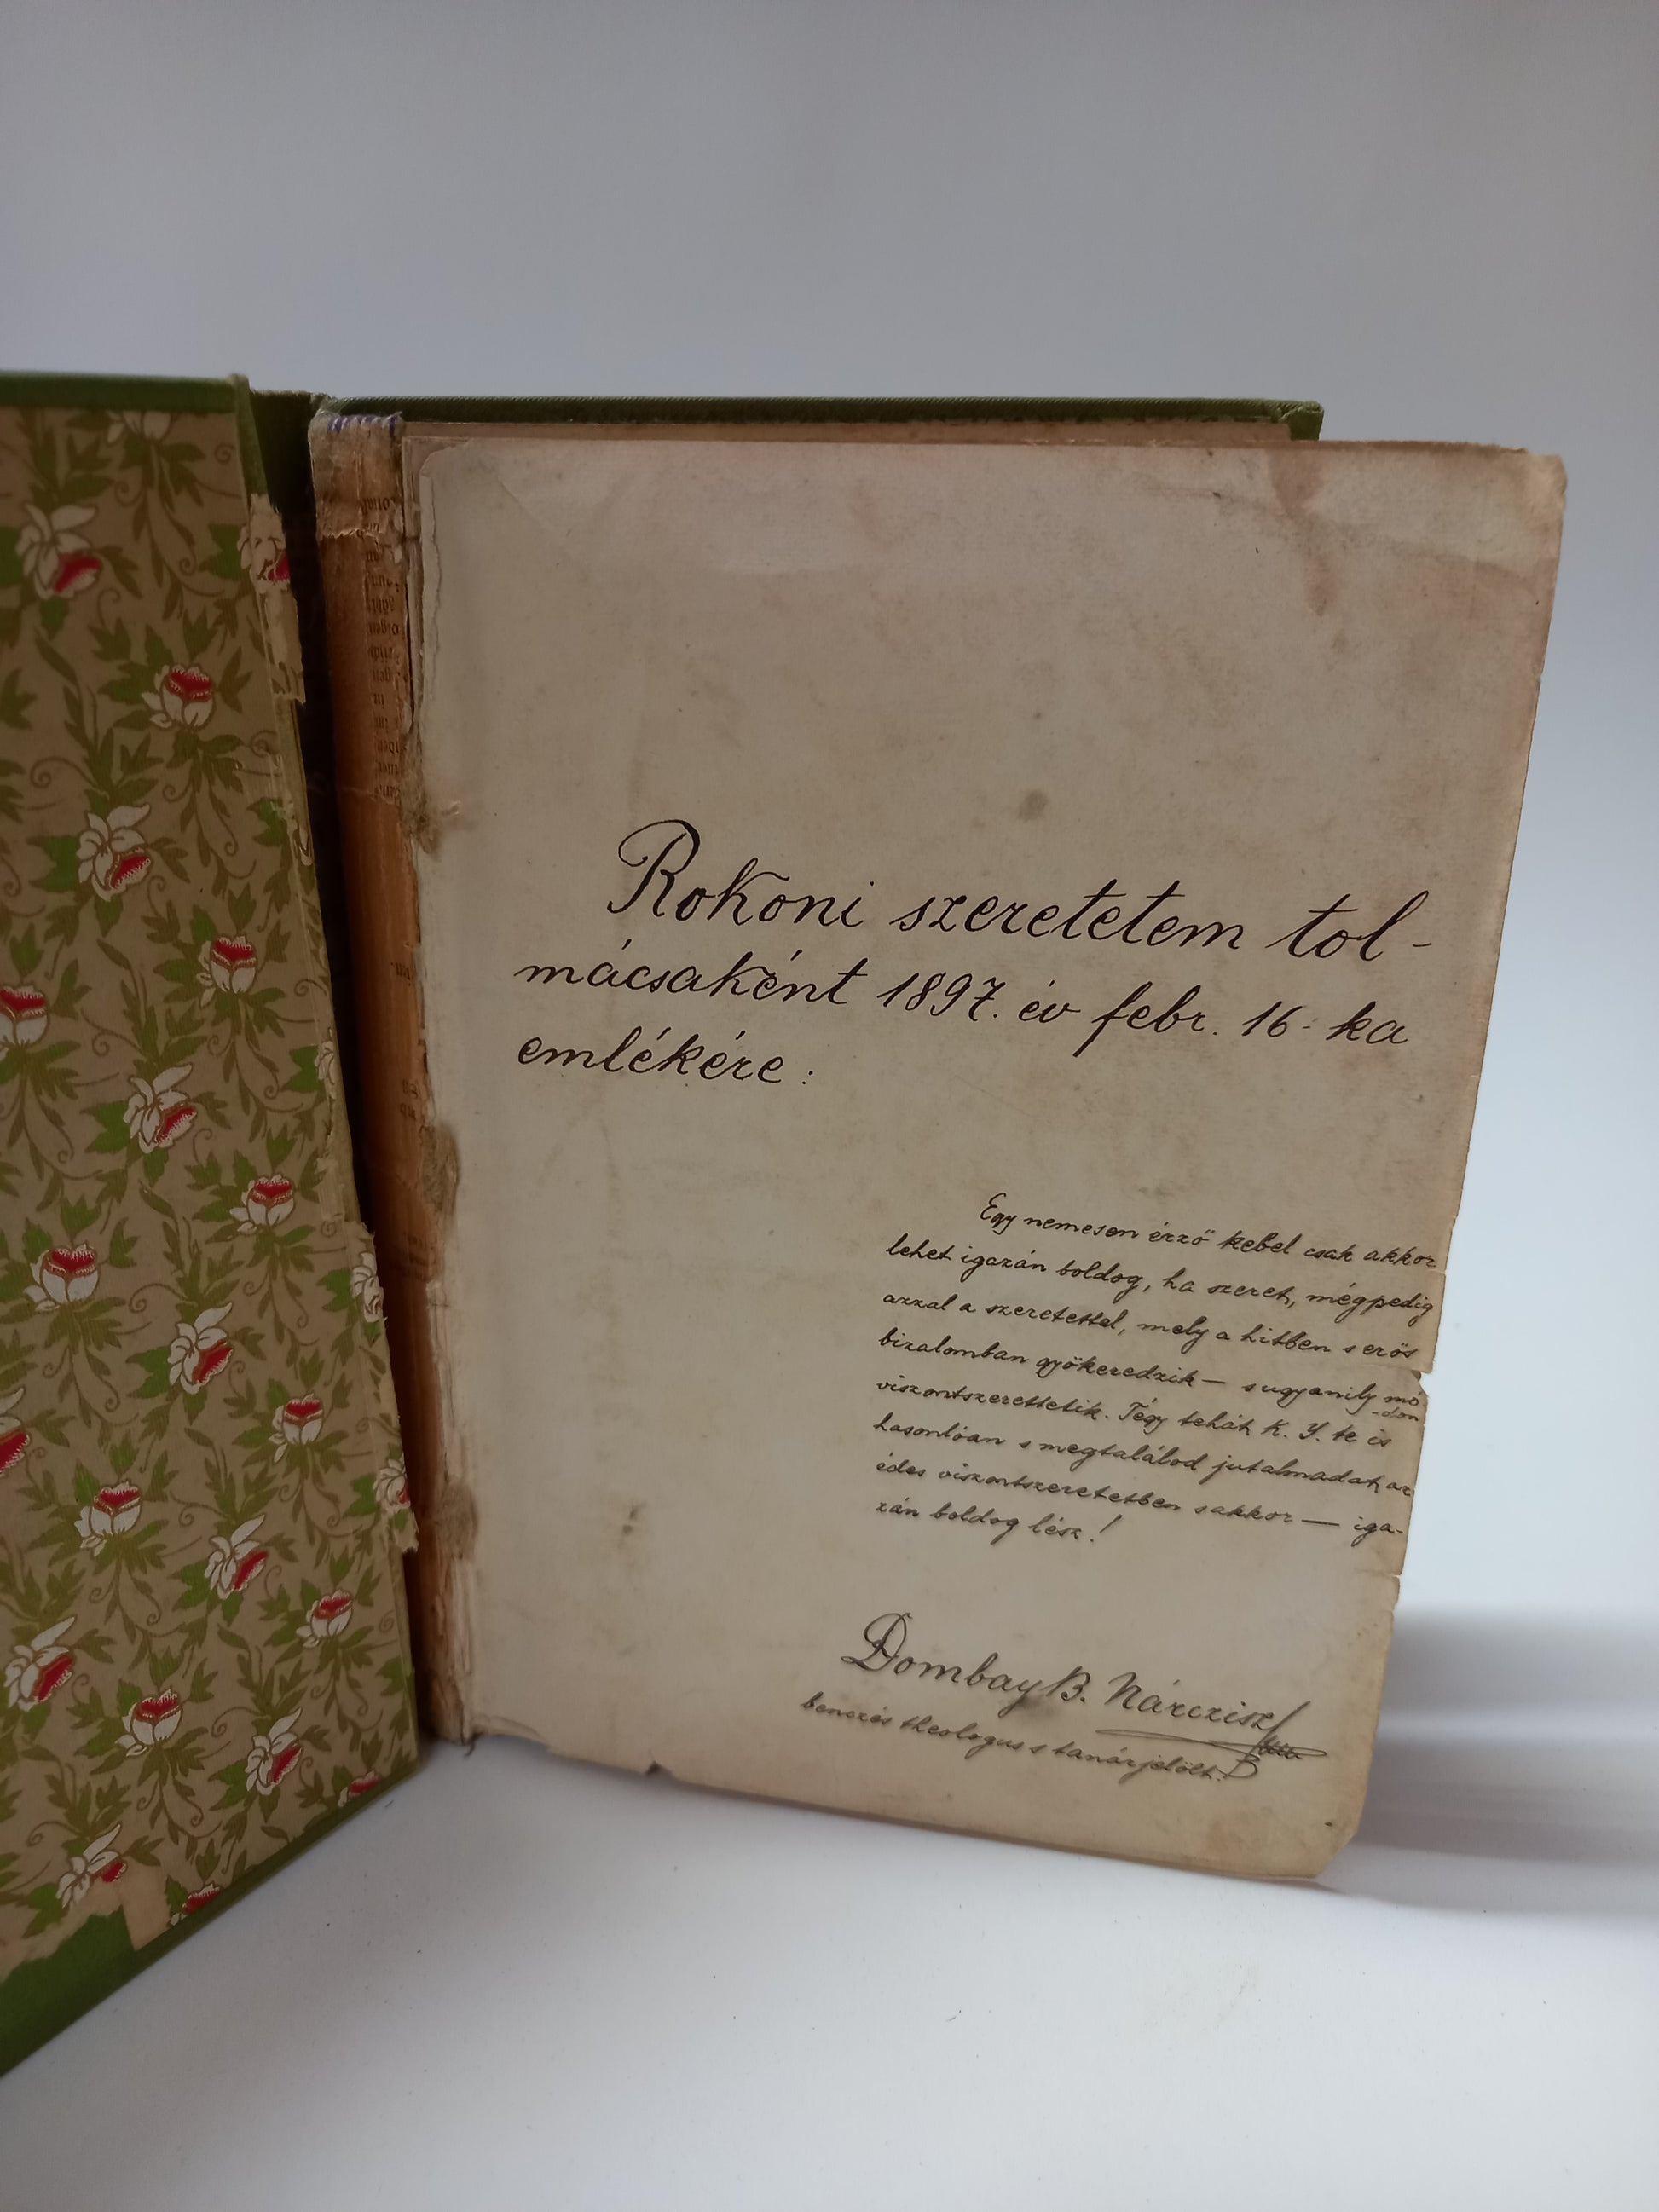 Rokoni szeretetem tol-
mácsaként 1897. év febr. 16-ka
emlékére:
Egy nemesen érző kebel csak akkor
lehet igazán boldog, ha szeret, mégpedig
azzal a szeretettel, mely a hitben s erős
bizalomban gyökeredzik — s ugyanily mó
-don
viszontszerettetik. Tégy tehát K. Y. te is
hasonlóan s megtalálod jutalmadat az
édes viszontszeretetben s akkor — iga-
zán boldog lész!
Dombay B. Nárczisz
benczés theologus s tanárjelölt.